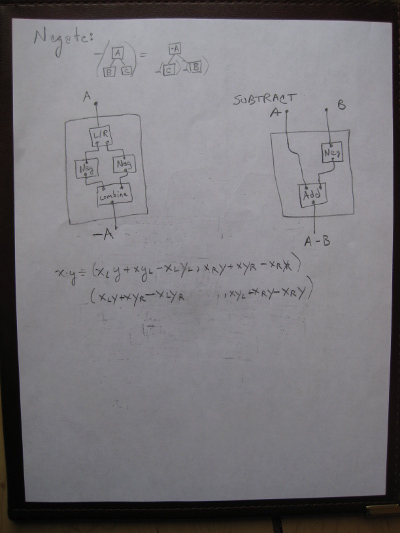 Negate:
-( A ) = -A
B C -C -B
A
L/R
Neg Neg
Combine
-A
SUBTRACT
A B
Neg
Add
A-B
x·y = (x_L y + x y_L - x_L y_L, x_R y + x y_R - x_R y_R)
(x_L y + x y_R - x_L y_R , , x y_L + x_R y - x_R y)